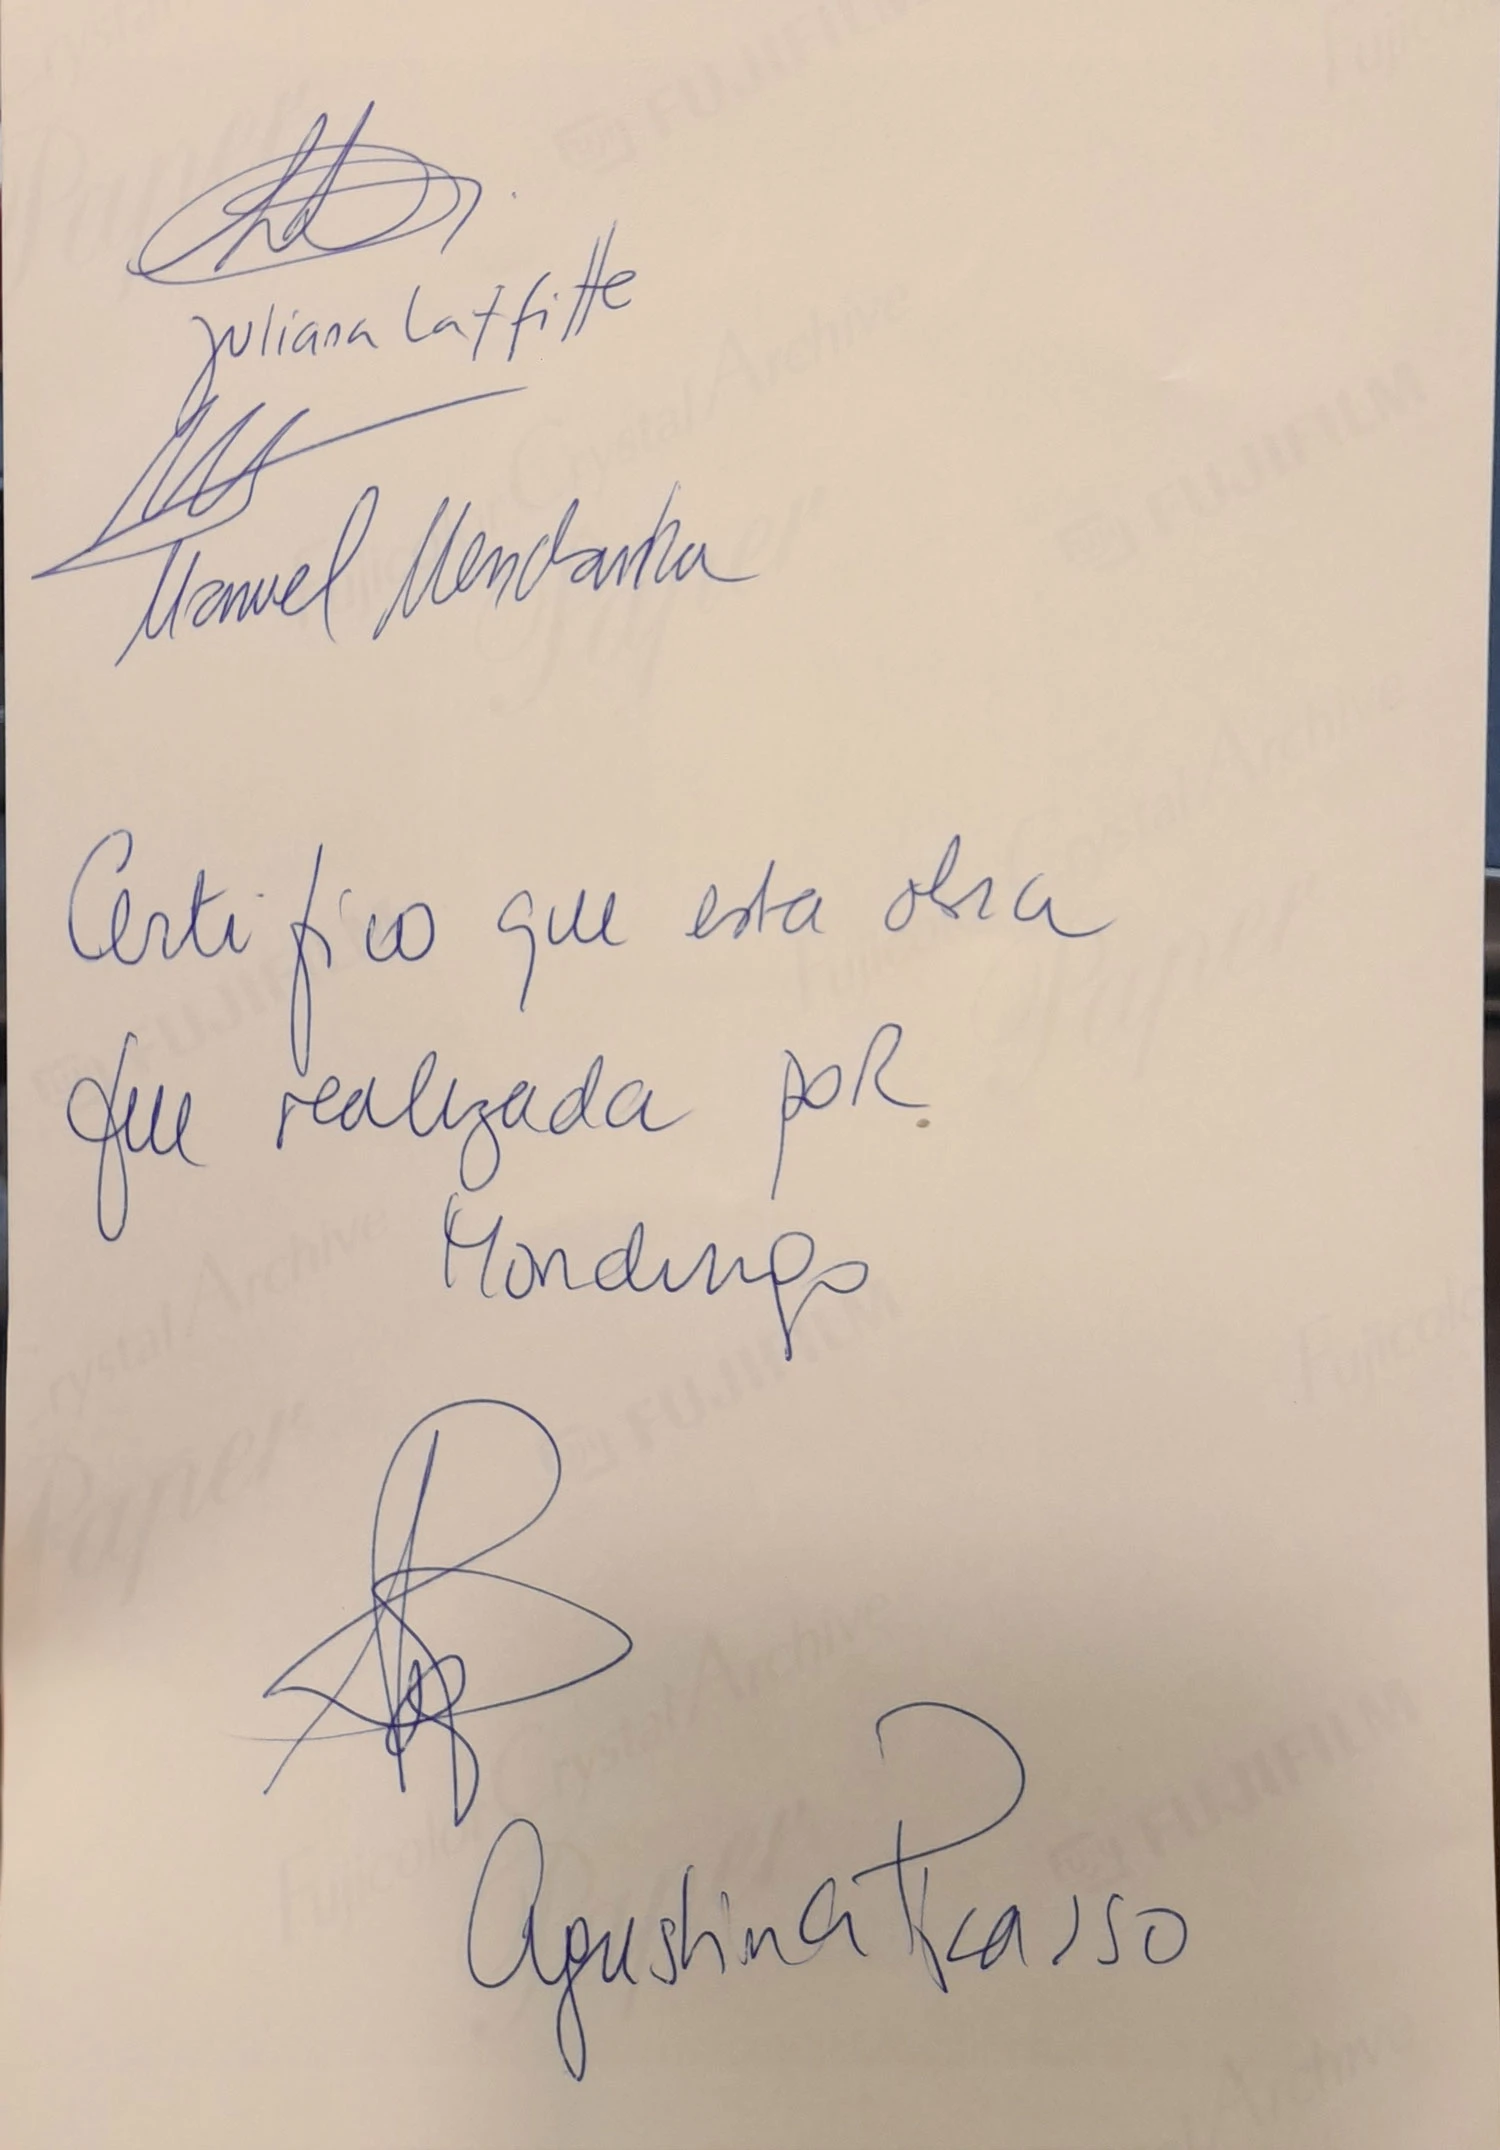 Juliana Laffitte
Manuel Mendanha
Certifico que esta obra
que realizada por
Mondongo
Agustina Picasso
FUJIFILM
Fujicolor Crystal Archive
Paper